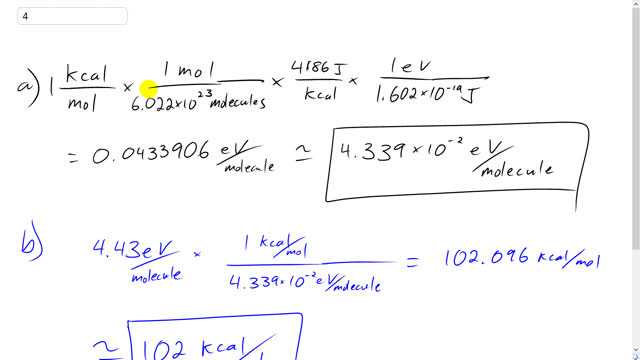 4
a) 1 kcal/mol × 1 mol/6.022×10^23 molecules × 4186 J/kcal × 1 eV/1.602×10^-19 J
= 0.0433906 eV/molecule ≃ 4.339×10^-2 eV/molecule
b) 4.43 eV/molecule × 1 kcal/mol/4.339×10^-2 eV/molecule = 102.096 kcal/mol
≃ 102 kcal/